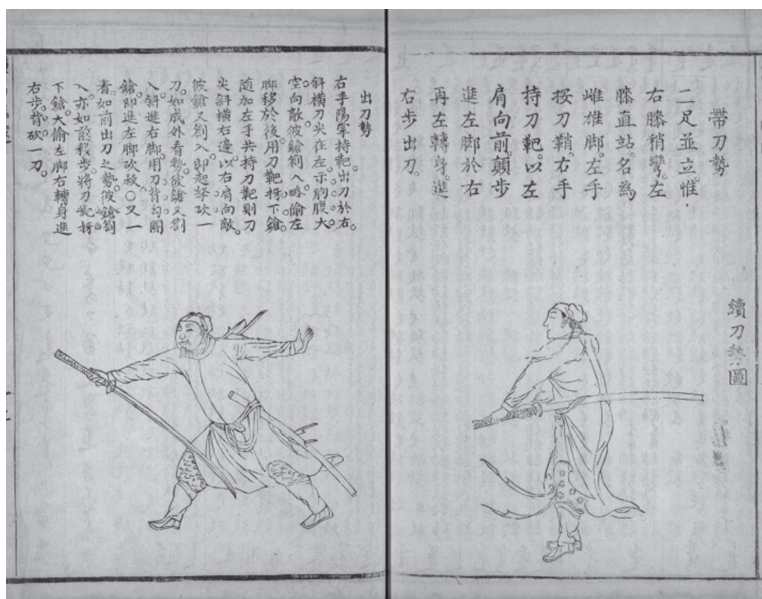 續刀勢圖
帶刀勢
二足並立惟
右膝稍彎左
膝直站名為
雌雄脚左手
按刀鞘右手
持刀靶以左
肩向前顛步
進左脚於右
再左轉身進
右步出刀
出刀勢
右手陽掌持靶出刀於右
斜橫刀尖在左示胸膛大
空向敵彼鎗劄入略偷左
脚移於後用刀靶拐下鎗
隨加左手共持刀靶則刀
尖斜橫右邊以右肩向敵
彼鎗又劄入即起挐砍一
刀如成外看勢彼鎗又劄
入斜進右脚用刀背勾開
鎗即進左脚砍殺○又一
着如前出刀之勢彼鎗劄
入亦如前移步將刀拐
下鎗大偷左脚右轉身進
右步背砍一刀